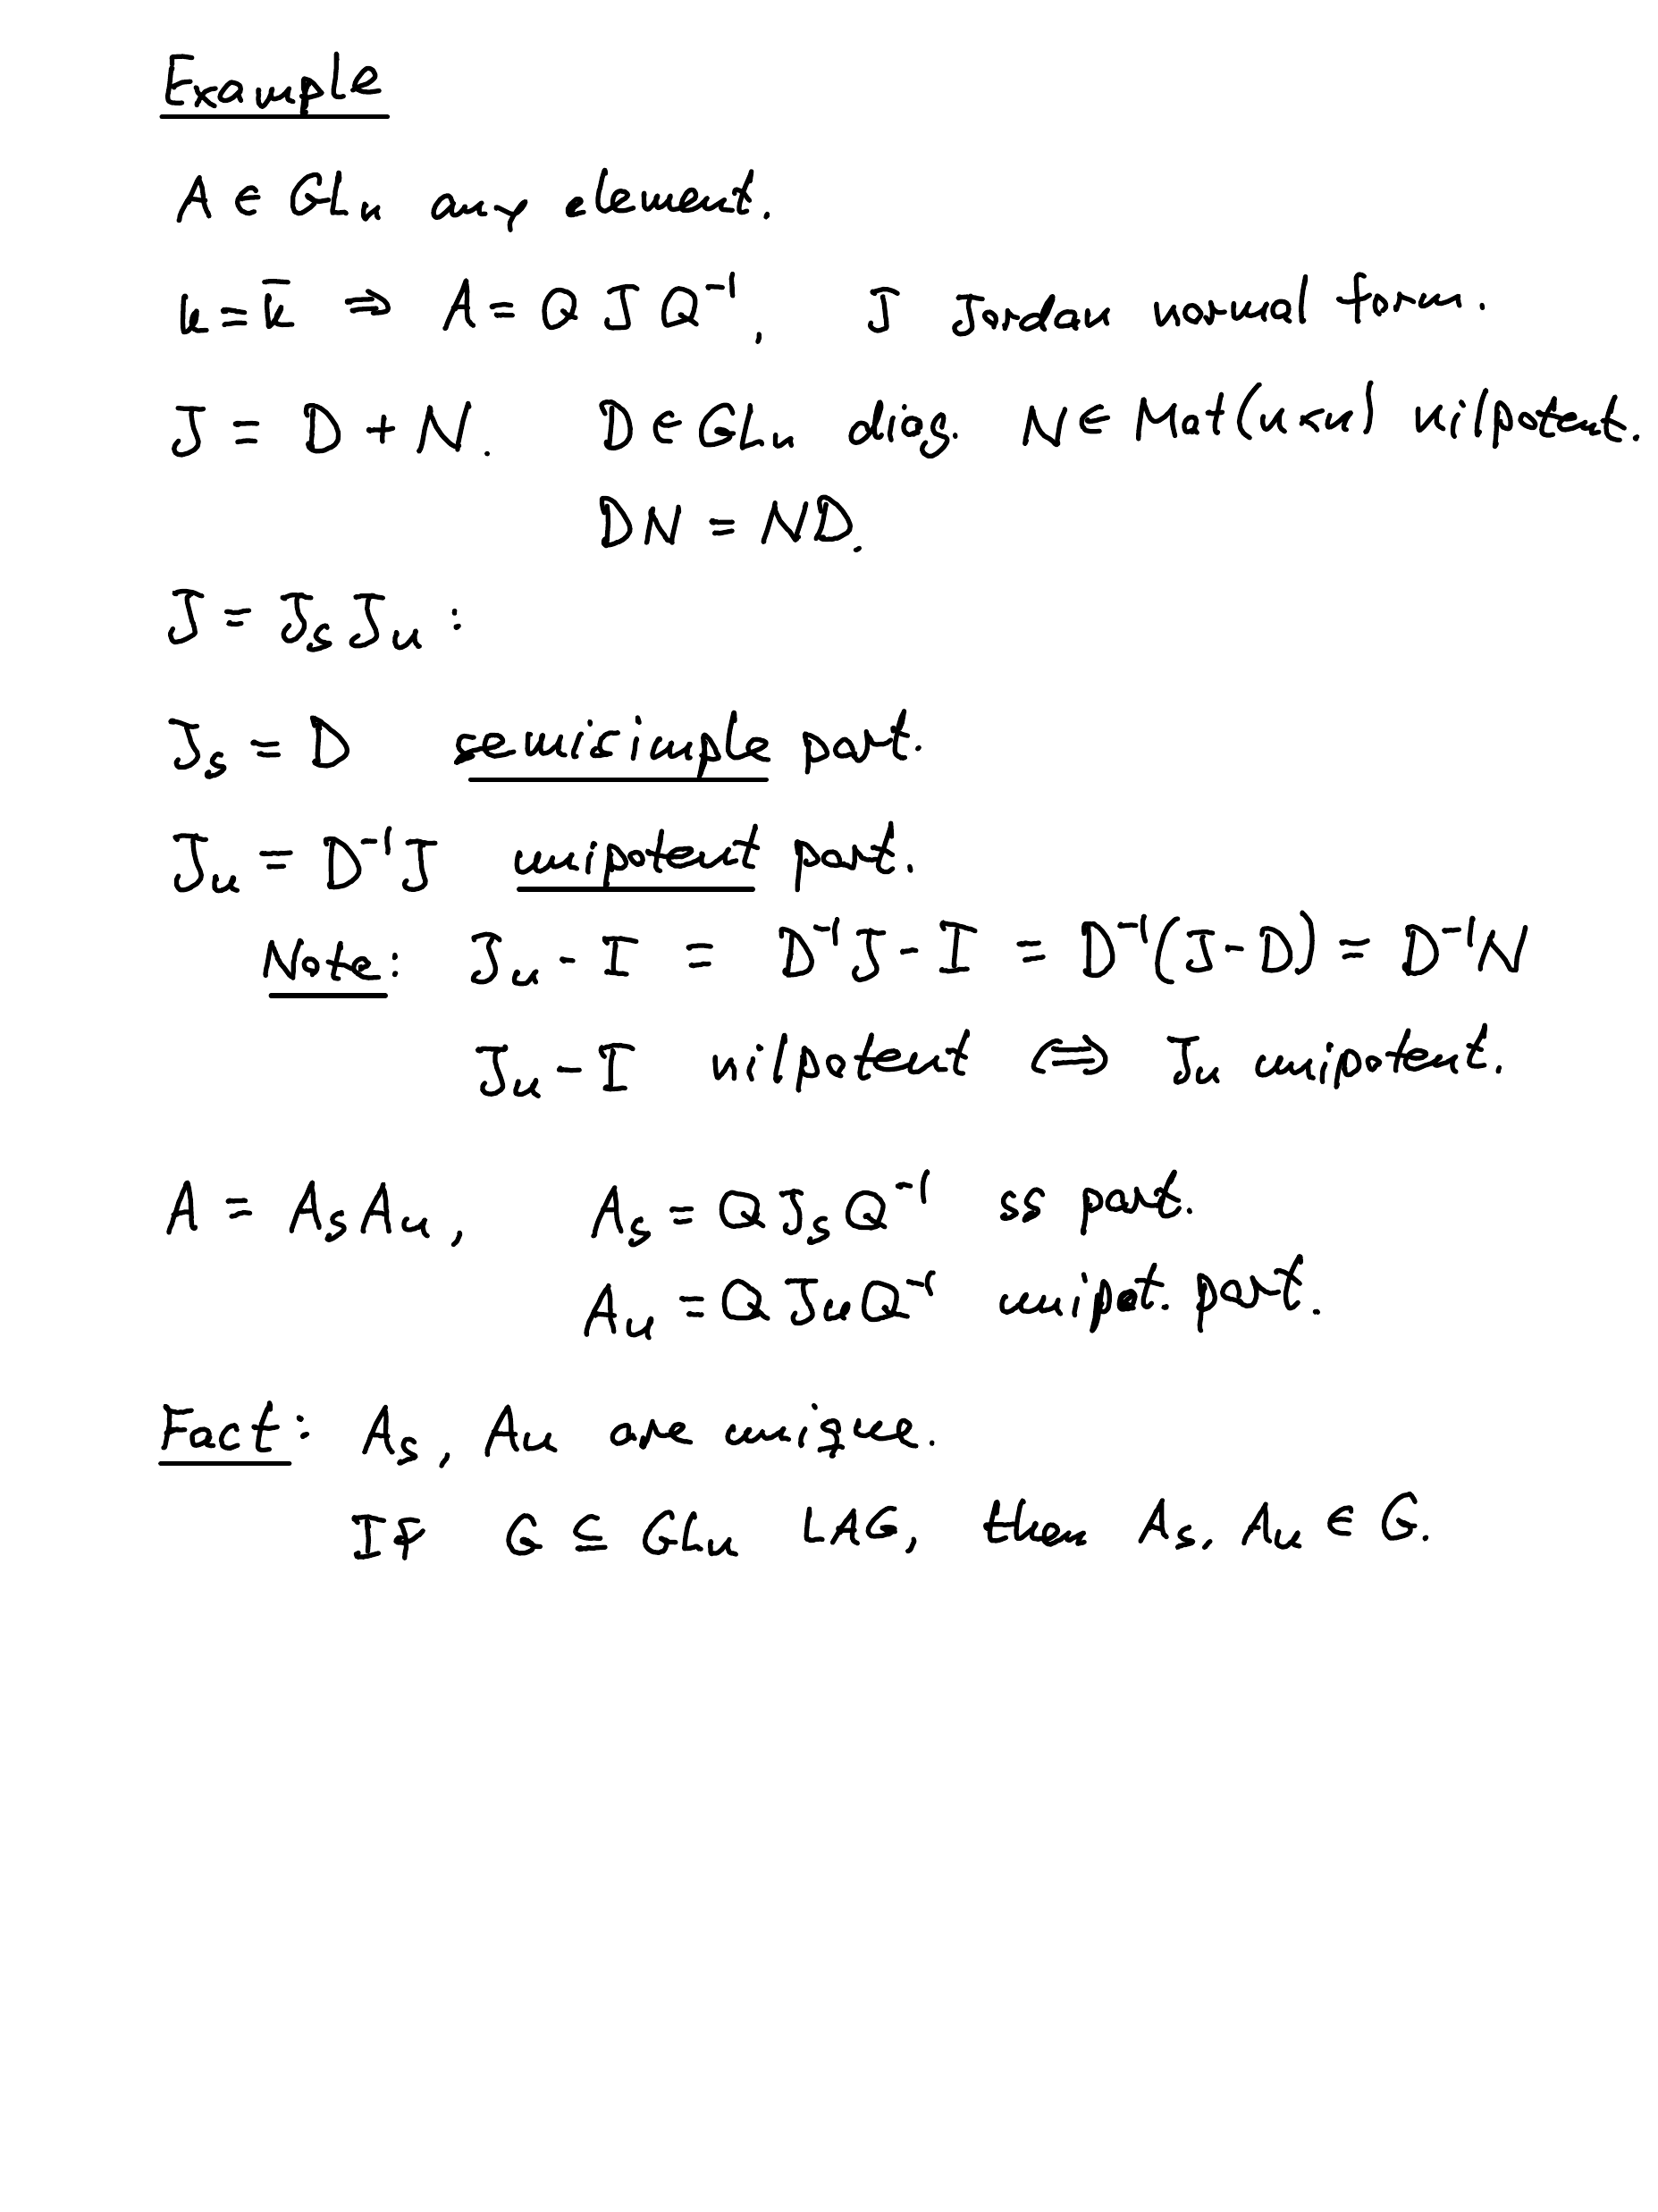 Example
A ∈ GLn any element.
k = k̄ ⇒ A = Q J Q⁻¹, J Jordan normal form.
J = D + N. D ∈ GLn diag. N ∈ Mat(n×n) nilpotent.
DN = ND.
J = Js Ju :
Js = D semisimple part.
Ju = D⁻¹J unipotent part.
Note: Ju - I = D⁻¹J - I = D⁻¹(J - D) = D⁻¹N
Ju - I nilpotent ⇔ Ju unipotent.
A = As Au, As = Q Js Q⁻¹ ss part.
Au = Q Ju Q⁻¹ unipot. part.
Fact: As, Au are unique.
If G ⊆ GLn LAG, then As, Au ∈ G.